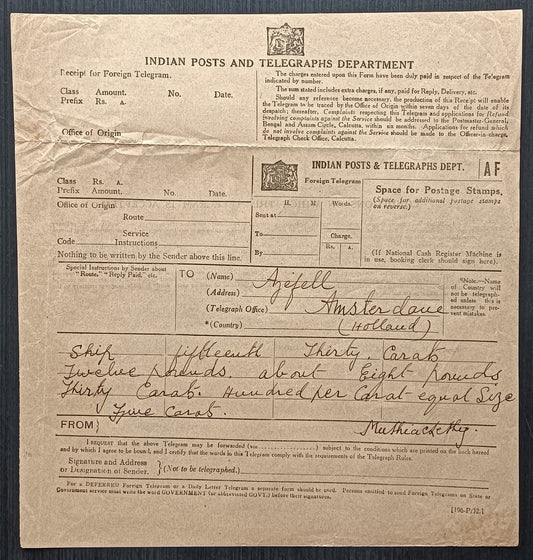 INDIAN POSTS AND TELEGRAPHS DEPARTMENT
Receipt for Foreign Telegram.
Class Amount. No. Date.
Prefix Rs. A.
Office of Origin
The charges entered upon this Form have been duly paid in respect of the Telegram
indicated by number.
The sum stated includes extra charges, if any, paid for Reply, Delivery, etc.
Should any reference become necessary, the production of this Receipt will enable
the Telegram to be traced by the Office of Origin within seven days of the date of its
despatch; thereafter, Complaints respecting this Telegram and applications for Refund
involving complaints against the Service should be addressed to the Postmaster-General,
Bengal and Assam Circle, Calcutta, within six months. Applications for refund which
do not involve complaints against the Service should be made to the Officer-in-charge,
Telegraph Check Office, Calcutta.
INDIAN POSTS & TELEGRAPHS DEPT.
AF
Class Rs. A.
Prefix Amount. No. Date.
Foreign Telegram
Space for Postage Stamps.
(Space for additional postage stamps
on reverse.)
Office of Origin
Route
Service
Code Instructions
Nothing to be written by the Sender above this line.
H. M. Words.
Sent at
To Charge.
Rs. A.
By
(If National Cash Register Machine is
in use, booking clerk should sign here).
Special Instructions by Sender about
"Route," "Reply Paid," etc.
TO
(Name) Ajefell
(Address)
(Telegraph Office) Amsterdam
*(Country) (Holland)
*Note.—Name
of Country will
not be telegraph-
ed unless this is
necessary to pre-
vent mistakes.
Ship fifteenth Thirty Carats
Twelve pounds. about Eight pounds
Thirty Carats. Hundred per Carat-equal Size
Five Carat.
FROM
I request that the above Telegram may be forwarded (via) subject to the conditions which are printed on the back hereof
and by which I agree to be bound, and I certify that the words in this Telegram comply with the requirements of the Telegraph Rules.
Signature and Address
or Designation of Sender.
(Not to be telegraphed)
For a DEFERRED Foreign Telegram or a Daily Letter Telegram a separate form should be used. Persons entitled to send Foreign Telegrams on State or
Government service must write the word GOVERNMENT (or abbreviated GOVT.) before their signatures.